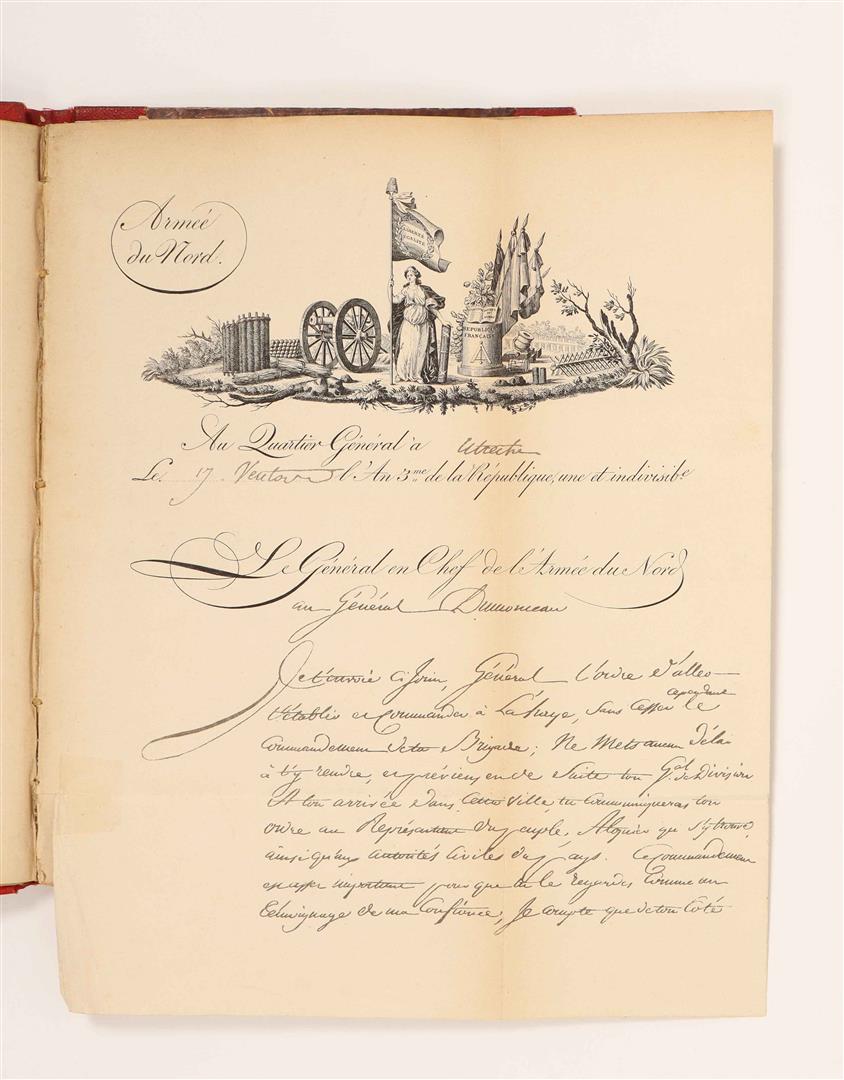 Armée
du Nord.
LIBERTÉ
EGALITÉ
REPUBLIQUE
FRANCAISE
Au Quartier Général à Utrecht
Le 17 Ventose l'An 3.me de la République, une et indivisib.e
Le Général en Chef de l'Armée du Nord
au Général Dumonceau
Je t'envoie ci Join, Général l'ordre d'aller
t'établir et Commander à La haye, sans Cesser cependant le
Commandement de ta Brigade; Ne Mets aucun délai
à t'y rendre, et préviens en de Suite ton G.al de Division
A ton arrivée dans Cette Ville, tu Communiqueras ton
ordre au Représentant du peuple, Alquier qui s'y trouve,
ainsi qu'aux autorités Civiles du pays. Ce Commandement
est assez important pour que tu le regardes Comme un
témoignage de ma Confiance, Je compte que de ton Côté